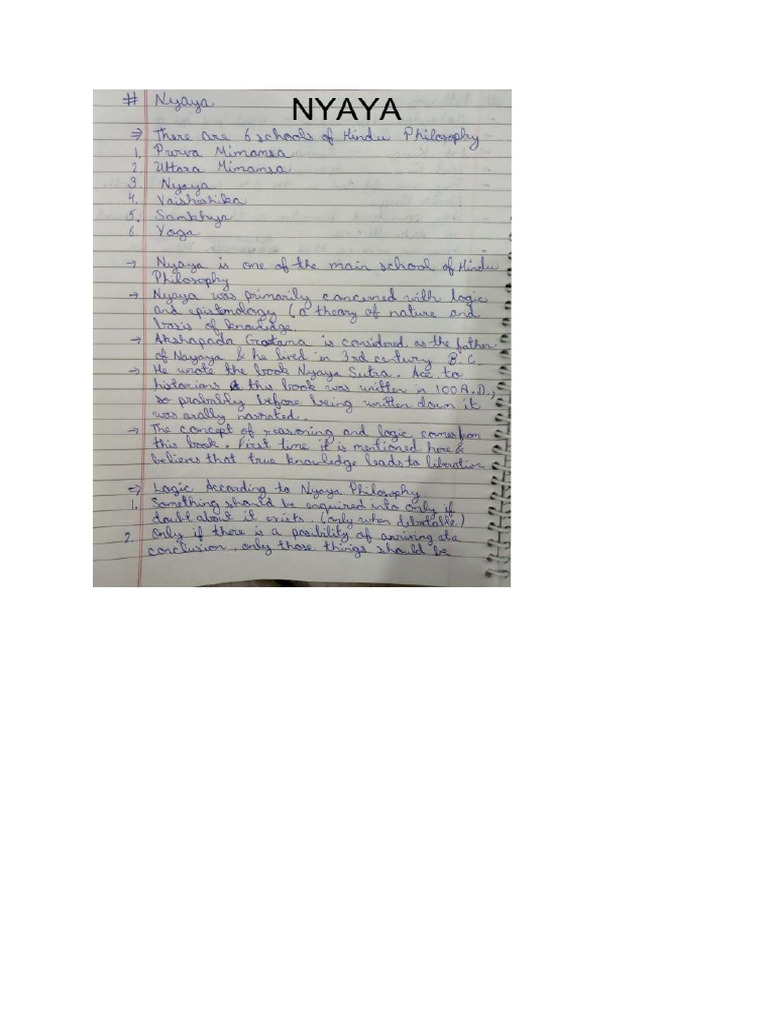 # Nyaya NYAYA
⇒ There are 6 schools of Hindu Philosophy
1. Purva Mimansa
2. Uttara Mimansa
3. Nyaya
4. Vaisheshika
5. Samkhya
6. Yoga
→ Nyaya is one of the main school of Hindu
Philosophy
→ Nyaya was primarily concerned with logic
and epistmology (a theory of nature and
basis of knowledge.
→ Akshapada Gautama is considered as the father
of Nayaya & he lived in 3rd century B.C.
→ He wrote the book Nyaya Sutra. Acc to
historians this book was written in 100 A.D.,
so probably before being written down it
was orally narrated.
→ The concept of reasoning and logic comes from
this book. First time it is mentioned here &
believes that true knowledge leads to liberation
⇒ Logic According to Nyaya Philosophy
1. Something should be enquired into only if
doubt about it exists. (only when debatable)
2. Only if there is a posibility of arriving at a
conclusion, only those things should be